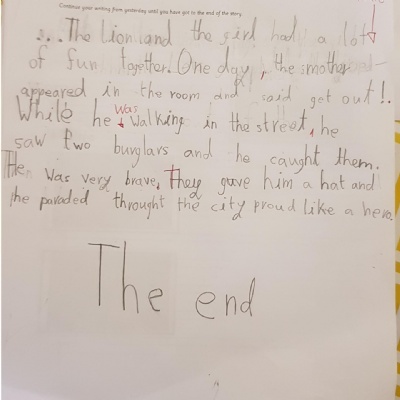 Continue your writing from yesterday until you have got to the end of the story.
s... The lion and the girl had a lot
of fun together. One day, the mother
appeared in the room and said get out!.
While he was walking in the street, he
saw two burglars and he caught them.
The was very brave, they gave him a hat and
he paraded throught the city proud like a hero.
The end